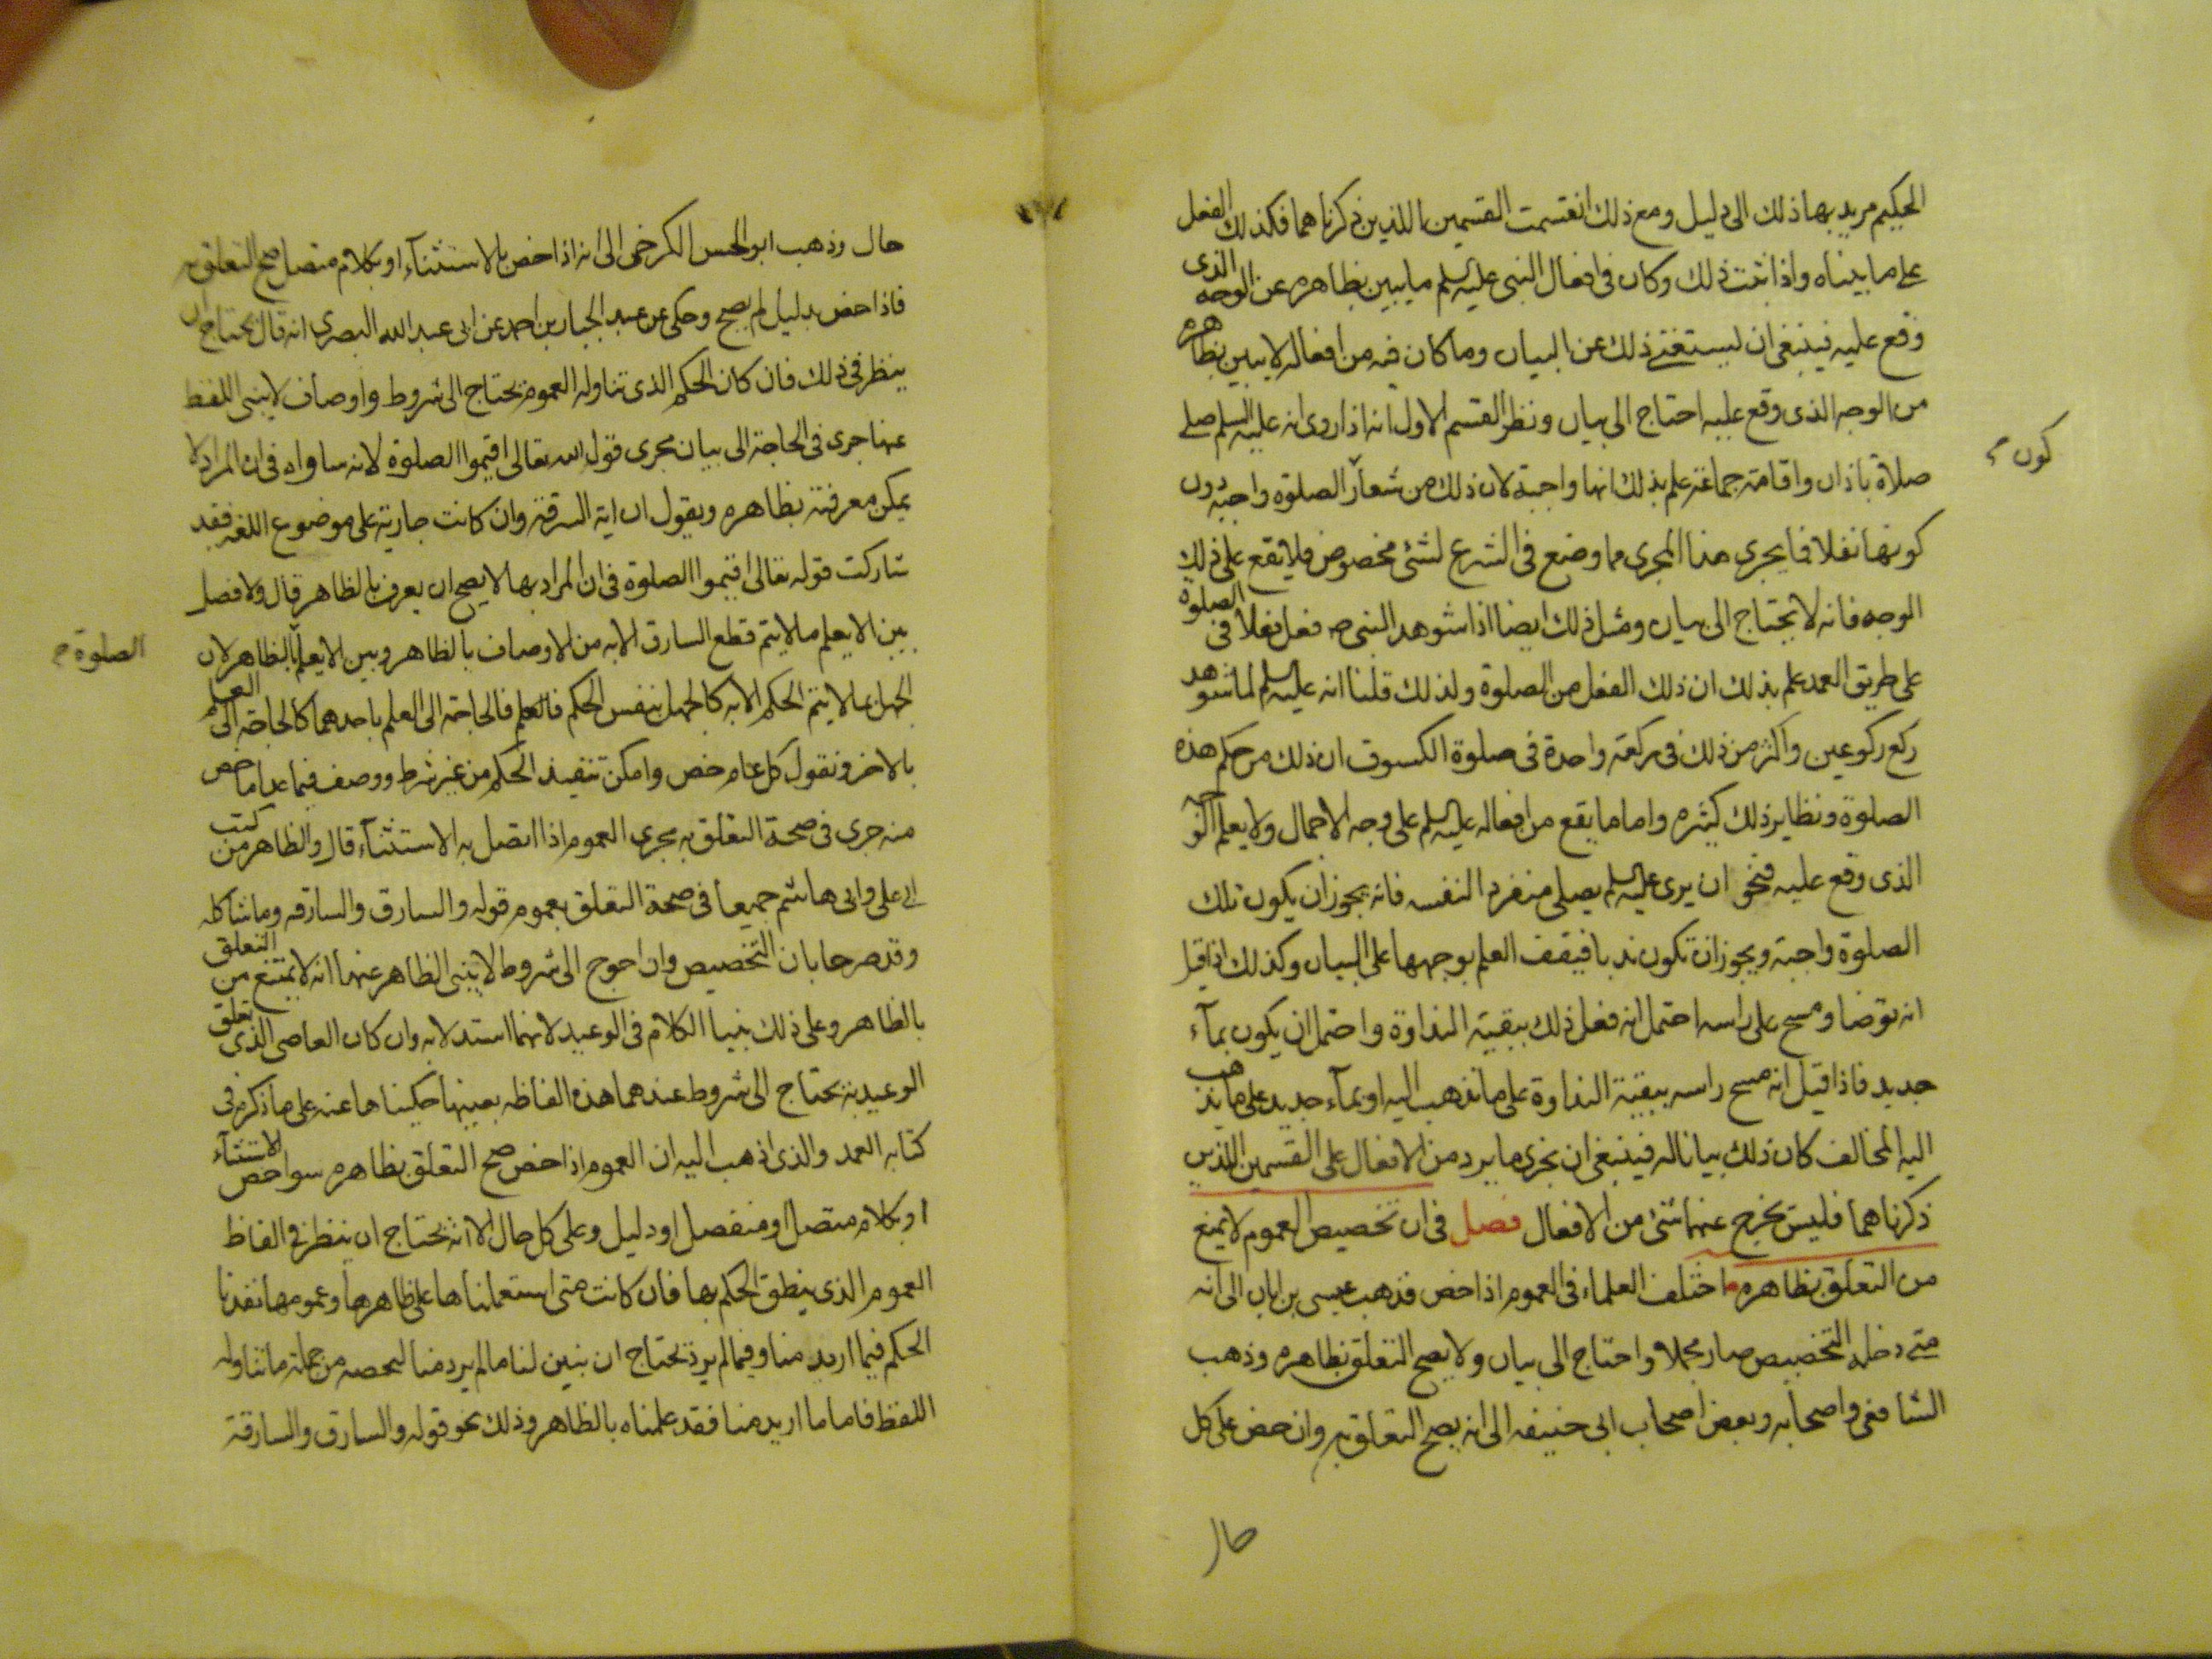 الحكيم مريد بها ذلك الى دليل ومع ذلك انقسمت القسمين اللذين ذكرناهما فكذلك الفعل
على ما بيناه واذا ثبت ذلك وكان في افعال النبي عليه السلم ما يبين بظاهره عن الوجه الذى
وقع عليه فينبغى ان يستغنى ذلك عن البيان وما كان فيه من افعاله لا يبين بظاهره
من الوجه الذى وقع عليه احتاج الى بيان ونظر القسم الاول انه اذا روى انه عليه السلم صلى
صلاة باذان واقامة جماعة علم بذلك انها واجبة لان ذلك من شعار الصلوة واجبة دون
كون
كونها نفلا فما يجرى هذا المجرى مما وضع فى الشرع لشئ مخصوص فلا يقع على ذلك
الوجه فانه لا يحتاج الى بيان ومثل ذلك ايضا اذا شوهد النبى ص فعل فعلا فى الصلوة
على طريق العمد علم بذلك ان ذلك الفعل من الصلوة ولذلك قلنا انه عليه السلم لما شوهد
ركع ركوعين واكثر من ذلك فى ركعة واحدة فى صلوة الكسوف ان ذلك من حكم هذه
الصلوة ونظاير ذلك كثيرة واما ما يقع من افعاله عليه السلم على وجه الاجمال ولا يعلم الوجه
الذى وقع عليه فنحو ان يرى عليه السلم يصلى منفرد النفسه فانه يجوز ان يكون تلك
الصلوة واجبة ويجوز ان تكون ندبا فيقف العلم بوجهها على البيان وكذلك اذا قيل
انه توضا ومسح على راسه احتمل انه فعل ذلك ببقية النداوة واحتمل ان يكون بمآء
جديد فاذا قيل انه مسح راسه ببقية النداوة على ما نذهب اليه او بمآء جديد على ما يذهب
اليه المخالف كان ذلك بيانا له فينبغى ان نجرى ما يرد من الافعال على القسمين اللذين
ذكرناهما فليس يخرج عنهما شئ من الافعال فصل فى ان تخصيص العموم لا يمنع
من التعلق بظاهره اختلف العلماء فى العموم اذا خص فذهب عيسى بن ابان الى انه
متى دخله التخصيص صار مجملا واحتاج الى بيان ولا يصح التعلق بظاهره وذهب
الشافعى واصحابه وبعض اصحاب ابى حنيفه الى انه يصح التعلق به وان خص على كل
حال
حال وذهب ابو الحسن الكرخى الى انه اذا خص بالاستثنآء او بكلام متصل صح التعلق به
فاذا خص بدليل لم يصح وحكى عن عبد الجبار بن احمد عن ابى عبد الله البصرى انه قال يحتاج ان
ينظر فى ذلك فان كان الحكم الذى تناوله العموم يحتاج الى شروط واوصاف لا ينبى اللفظ
عنها جرى فى الحاجة الى بيان مجرى قول الله تعالى اقيموا الصلوة لانه ساواه فى ان المراد لا
يمكن معرفته بظاهره ويقول ان اية السرقة وان كانت جارية على موضوع اللغة فقد
شاركت قوله تعالى اقيموا الصلوة فى ان المراد بها لا يصح ان يعرف بالظاهر قال ولا فصل
بين الا يعلم ما لا يتم قطع السارق الا به من الاوصاف بالظاهر وبين الا يعلم بالظاهر لان
الصلوة
الجهل بما لا يتم الحكم الا به كالجهل بنفس الحكم فالعلم فالحاجة الى العلم باحدهما كالحاجة الى العلم
بالاخر ونقول كل عام خص وامكن تنفيذ الحكم من غير شرط ووصف فيما عدا ما خص
منه جرى فى صحة التعلق به مجرى العموم اذا اتصل به الاستثنآء قال والظاهر من كتب
ابى على وابى هاشم جميعا فى صحة التعلق بعموم قوله والسارق والسارقه وما شاكله
وقد صرحا بان التخصيص وان احوج الى شروط لا ينبى الظاهر عنها انه لا يمتنع من التعلق
بالظاهر وعلى ذلك بنيا الكلام فى الوعيد لانهما استدلا به وان كان العاصى الذى تعلق
الوعيد به يحتاج الى شروط عندهما هذه الفاظه بعينها حكيناها عنه على ما ذكره فى
كتابه العمد والذى اذهب اليه ان العموم اذا خص صح التعلق بظاهره سوا خص الاستثنآء
او بكلام متصل او منفصل او دليل وعلى كل حال الا انه يحتاج ان ينظر فى الفاظ
العموم الذى ينطق الحكم بها فان كانت متى استعملناها على ظاهرها وعمومها نفذنا
الحكم فيما اريد منا وفيما لم يرد نحتاج ان نبين لنا ما لم يرد منا لنخصه من جملة ما تناوله
اللفظ فاما ما اريد منا فقد علمناه بالظاهر وذلك نحو قوله والسارق والسارقة